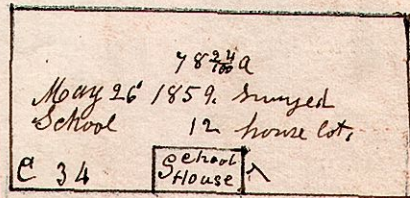 78 24/100 a
May 26 1859. Surveyed
School 12 house lots
C 34 School House